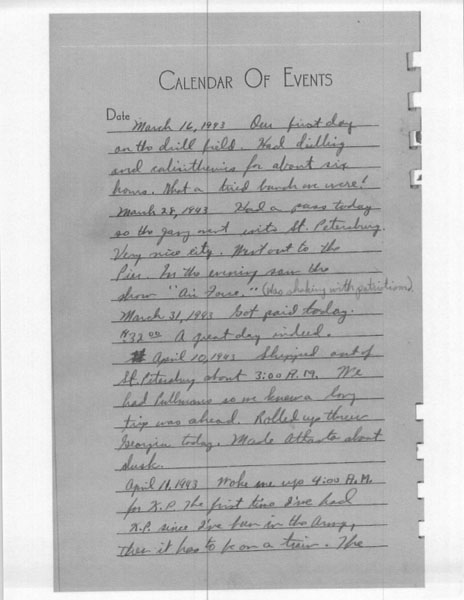 CALENDAR OF EVENTS
Date
March 16, 1943 Our first day
on the drill field. Had drilling
and calisthenics for about six
hours. What a tired bunch we were!
March 28, 1943 Had a pass today
so the gang went into St. Petersburg.
Very nice city. Went out to the
Pier. In the evening saw the
show "Air Force." (Was choking with patriotism).
March 31, 1943 Got paid today.
$32.00 A great day indeed.
April 10, 1943 Shipped out of
St. Petersburg about 3:00 A.M. We
had Pullmans so we knew a long
trip was ahead. Rolled up threw
Georgia today. Made Atlanta about
dusk.
April 11, 1943 Woke me up 4:00 A.M.
for K.P. The first time I've had
K.P. since I've been in the Army,
then it has to be on a train. The